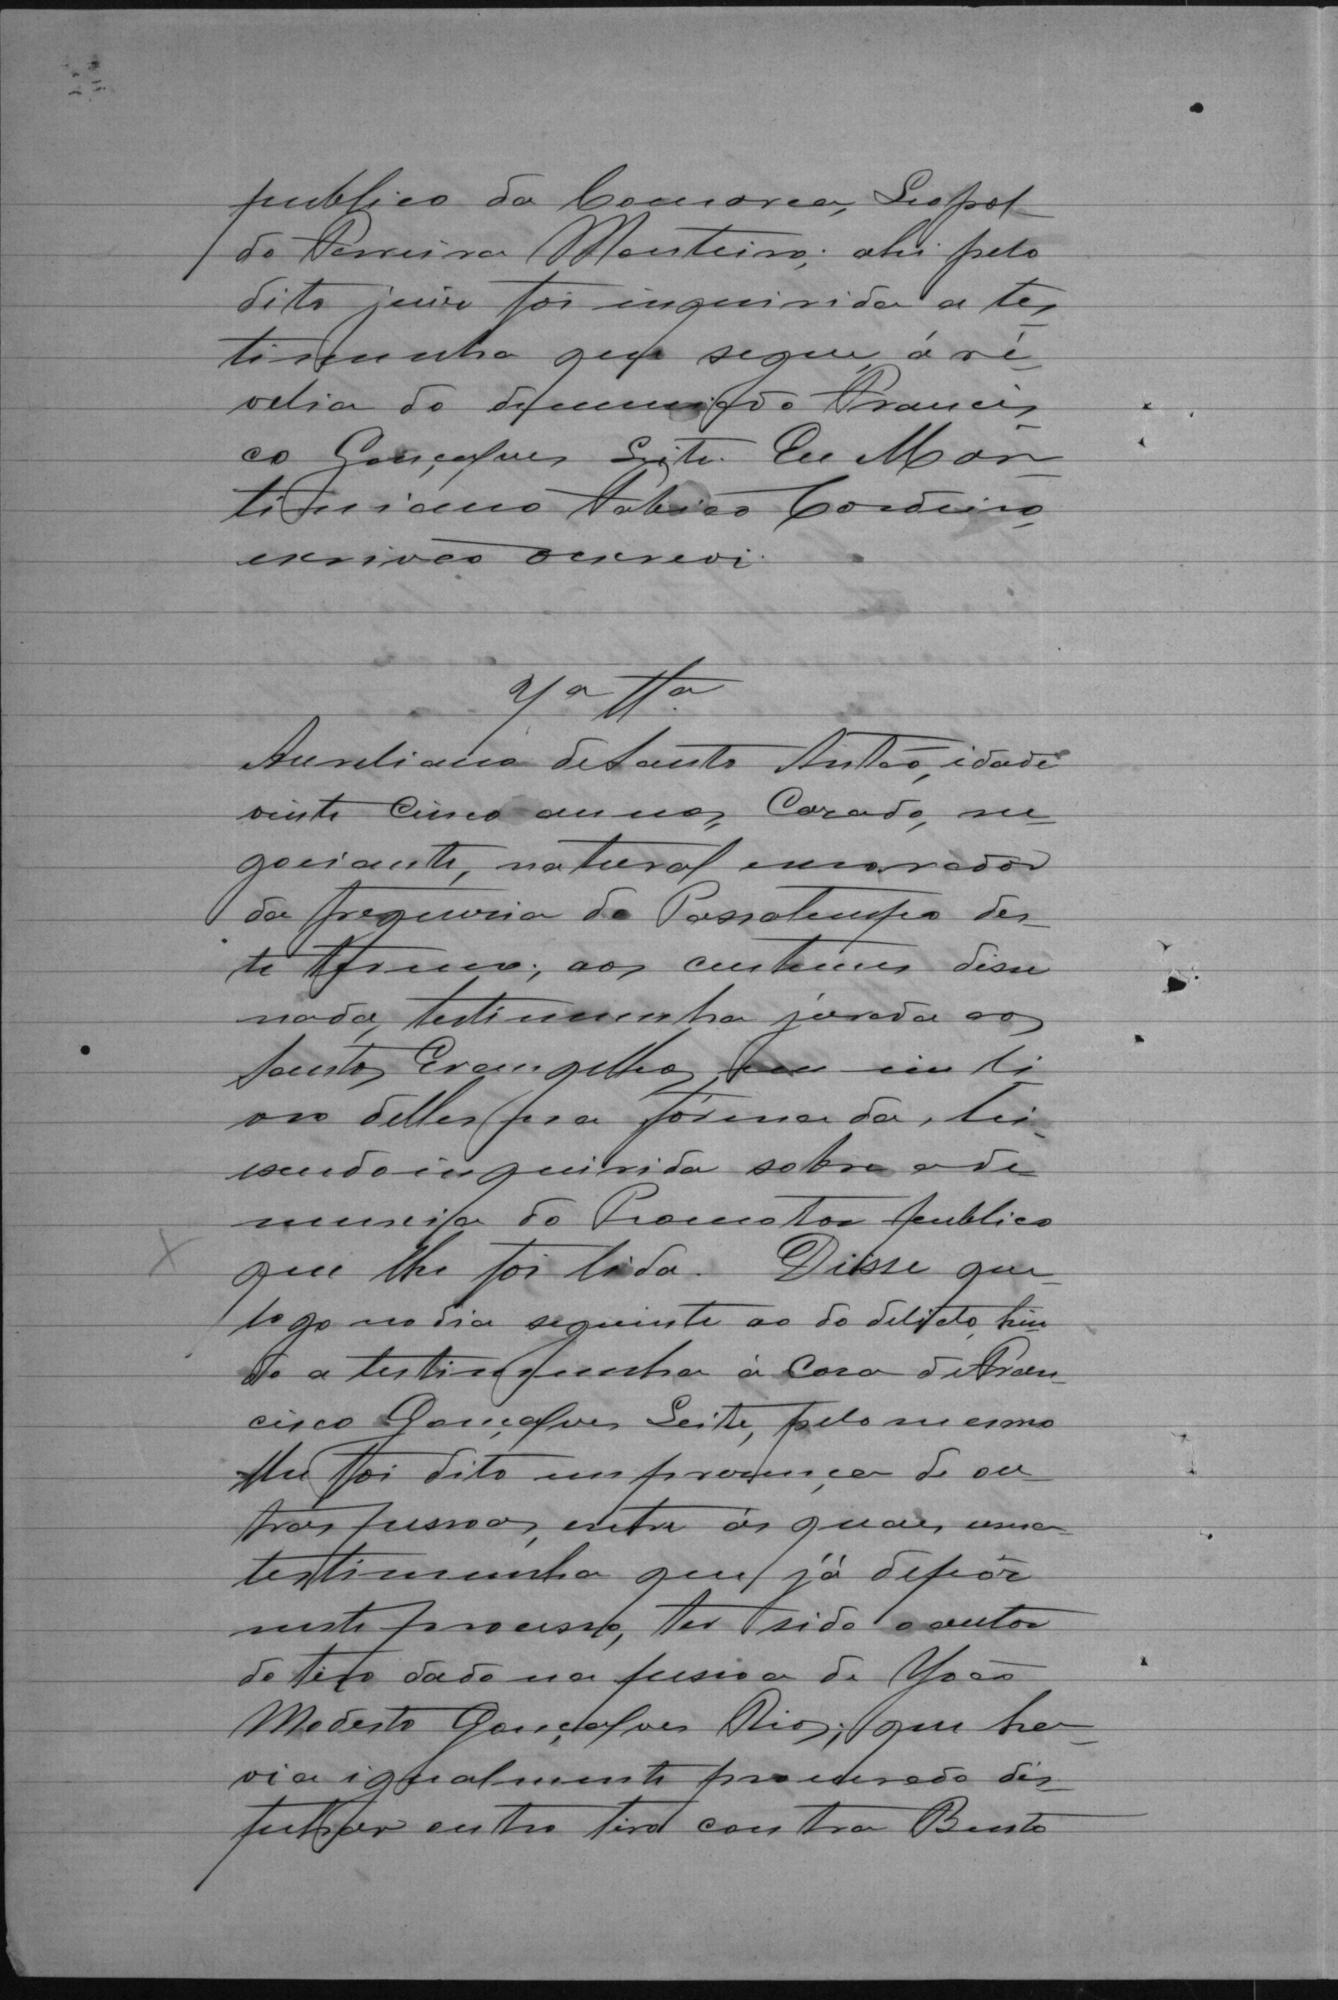 publico da Comarca, Leopol
do Ferreira Monteiro; ahi pelo
dito juiz foi inquirida a tes
timunha que segue, á ré
velia do denunciado Francis
co Gonçalves Leite. Eu Mar
timiano Fabião Cordeiro,
escrivão o escrevi.
7a tta.
Aureliano de Santo Antão, idade
vinte cinco annos, Casado, ne
gociante, natural e morador
da freguesia do Passatempo des
te termo; aos custumes disse
nada, testimunha jurada aos
Santos Evangelhos em um li
vro delles pra fórma da lei
e sendo inquirida sobre a de
nuncia do Promotor publico
que lhe foi lida. Disse que
logo no dia seguinte ao do delicto, hin
do a testimunha á Casa de Fran
cisco Gonçalves Leite, pelo mesmo
lhe foi dito em prezença de ou
tras pessoas, entre ás quaes uma
testimunha que já depôz
neste processo, ter sido o autor
do tiro dado na pessoa de João
Modesto Gonçalves Rios; que ha
via igualmente procurado dis
parar outro tiro contra Bento